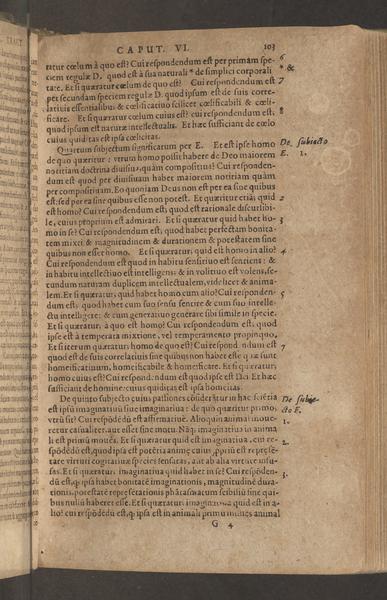 CAPUT. VI. 103
ratur cœlum à quo est? Cui respondendum est per primam spe- 6
ciem regulæ D. quod est à sua naturali * de simplici corporali * &
tate. Et si quæratur cœlum de quo est? Cui respondendum est 7
per secundam speciem regulæ D. quod ipsum est de suis corre-
lativis essentialibus & cœlificativo scilicet cœlificabili & cœli-
ficare. Et si quæratur cœlum cuius est? cui respondendum est, 8
quod ipsum est naturæ intellectualis. Et hæc sufficiant de cœlo
cuius quiditas est ipsa cœlicitas.
Quartum subiectum significatum per E. Et est ipse homo De subiecto
de quo quæritur: vtrum homo possit habere de Deo maiorem E. 1.
notitiam doctrina diuisiua, quàm compositiua? Cui responden-
dum est: quod per diuisiuam habet maiorem notitiam quàm
per compositiuam. Eo quoniam Deus non est per ea sine quibus
est: sed per ea sine quibus esse non potest. Et quæritur etiã: quid 2
est homo? Cui respondendum est: quod est rationale
le, cuius proprium est admirari. Et si quæratur quid habet ho- 3
mo in se? Cui respondendum est: quod habet perfectam bonita-
tem mixti & magnitudinem & durationem & potestatem sine
quibus non esset homo. Et si quæratur: quid est homo in alio? 4
Cui respondendum est quod in habitu sensitiuo est sentiens: &
in habitu intellectiuo est intelligens: & in volitiuo est volens, se-
cundum naturam duplicem intellectualem, videlicet & anima-
lem. Et si quæratur: quid habet homo cum alio? Cui responden- 5
dum est: quod habet cum suo sensu sentire & cum suo intelle-
ctu intelligere: & cum generatiuo generare sibi simile in specie.
Et si quæratur: à quo est homo? Cui respondendum est, quod
ipse est à temperata mixtione, vel temperamento propinquo,
Et si iterum quæratur: homo de quo est? Cui respondendum est 7
quod est de suis correlatiuis sine quibus non habet esse quæ sunt
homeificatiuum, homeificabile & homeificare. Et si quæratur:
homo cuius est? Cui respondendum est quod ipse est Dei Et hæc
sufficiant de homine: cuius quiditas est ipsa homeitas.
De quinto subiecto cuius passiones cõsiderãtur in hac scientia De subie-
est ipsũ imaginatiuũ siue imaginatiua: de quo quæritur primo, cto F.
vtrũ sit? Cui respõdẽdũ est affirmatiuè. Alioquin animal moue- 1.
retur casualiter: aut esset sine motu. Nãq; imaginatiua in anima
li est primũ mouẽs. Et si quæratur quid est imaginatiua, cui re- 2.
spõdẽdũ est, quòd ipsa est potẽtia animæ cuius, propriũ est repræsẽ-
tare virtuti cogitatiuæ species sensatas, aut ab alia virtute infu-
sas. Et si quæratur: imaginatiua quid habet in se? Cui respõden- 3.
dũ est, q; ipsa habet bonitatẽ imaginationis, magnitudinẽ dura-
tionis, potestatẽ repręsẽtationis phãtasmatum scibiliũ sine qui-
bus nullũ haberet esse. Et si quæratur: imaginatiua quid est in a-
lio? cui respõdẽdũ est, q; ipsa est in animali primũ mouẽs animal
G 4